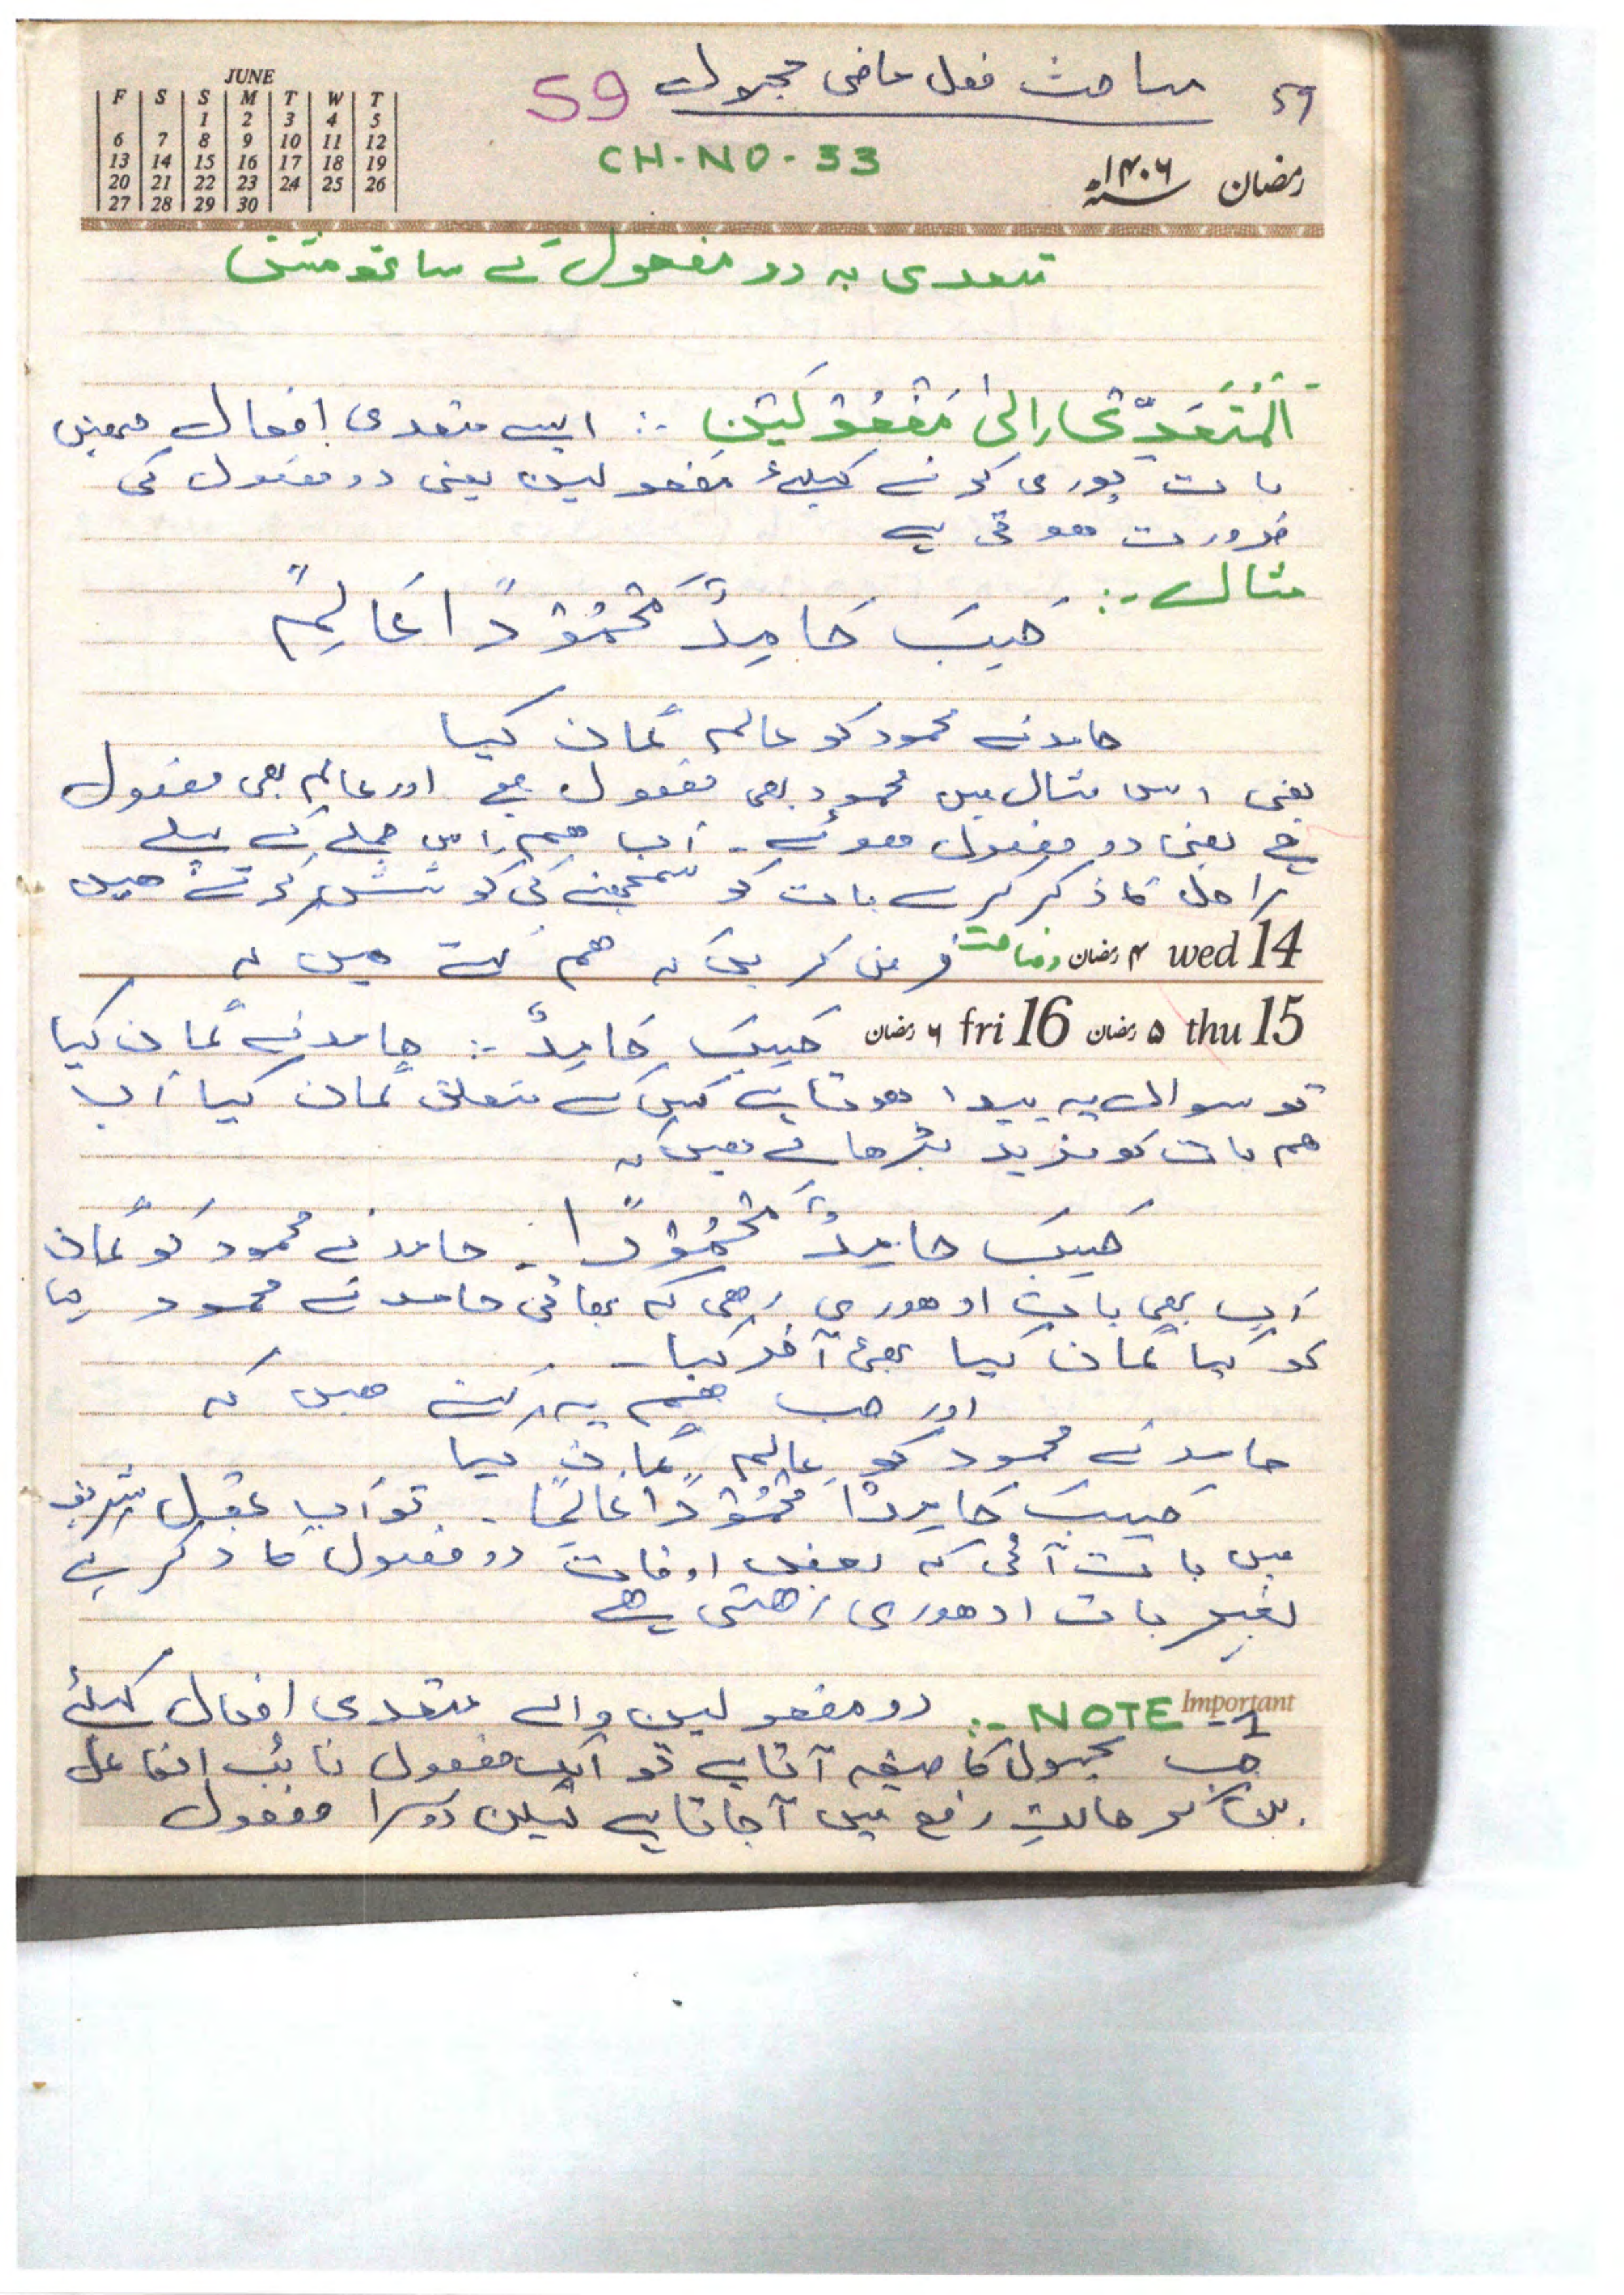 ۵۹ مباحث فعل ماضی مجہول 59
JUNE
F S S M T W T
1 2 3 4 5
6 7 8 9 10 11 12
13 14 15 16 17 18 19
20 21 22 23 24 25 26
27 28 29 30
CH-NO-33
رمضان ۱۴۰۶ھ
متعدی بہ دو مفعول کے ساتھ مشق
اَلْمُتَعَدِّیْ اِلیٰ مَفْعُوْلَیْنِ :- ایسے متعدی افعال جنھیں
بات پوری کرنے کیلئے مفعولین یعنی دو مفعول کی
ضرورت ھوتی ہے
مثال :-
حَسِبَ حَامِدٌ مَحْمُوْدًا عَالِمًا
حامد نے محمود کو عالم گمان کیا
یعنی اس مثال میں محمود بھی مفعول ہے اور عالم بھی مفعول
ہے یعنی دو مفعول ھوئے - اب ھم اس جملے کے پہلے
مراحل کا ذکر کرکے بات کو سمجھنے کی کوشش کرتے ھیں
wed 14 ۴ رمضان وضاحت فرض کریں کہ ھم کہتے ھیں کہ
thu 15 ۵ رمضان fri 16 ۶ رمضان حَسِبَ حَامِدٌ :- حامد نے گمان کیا
تو سوال یہ پیدا ھوتا ہے کس کے متعلق گمان کیا اب
ھم بات کو مزید بڑھاتے ھیں کہ
حَسِبَ حامِدٌ مَحْمُوْدًا - حامد نے محمود کو گمان
اب بھی بات ادھوری رھی کہ بھائی حامد نے محمود
کو کیا گمان کیا بھئ آخر کیا -
اور جب ھم یہ کہتے ھیں کہ
حامد نے محمود کو عالم گمان کیا
حَسِبَ حَامِدٌا مَحْمُوْدًا عَالِمًا - تو اب عقل شریف
میں بات آئی کہ بعض اوقات دو مفعول کا ذکر کیے
بغیر بات ادھوری رھتی ہے
Important NOTE-1 :- دو مفعولین والے متعدی افعال کیلئے
جب مجہول کا صیغہ آتا ہے تو ایک مفعول نائب الفاعل
بن کر حالتِ رفع میں آجاتا ہے لیکن دوسرا مفعول